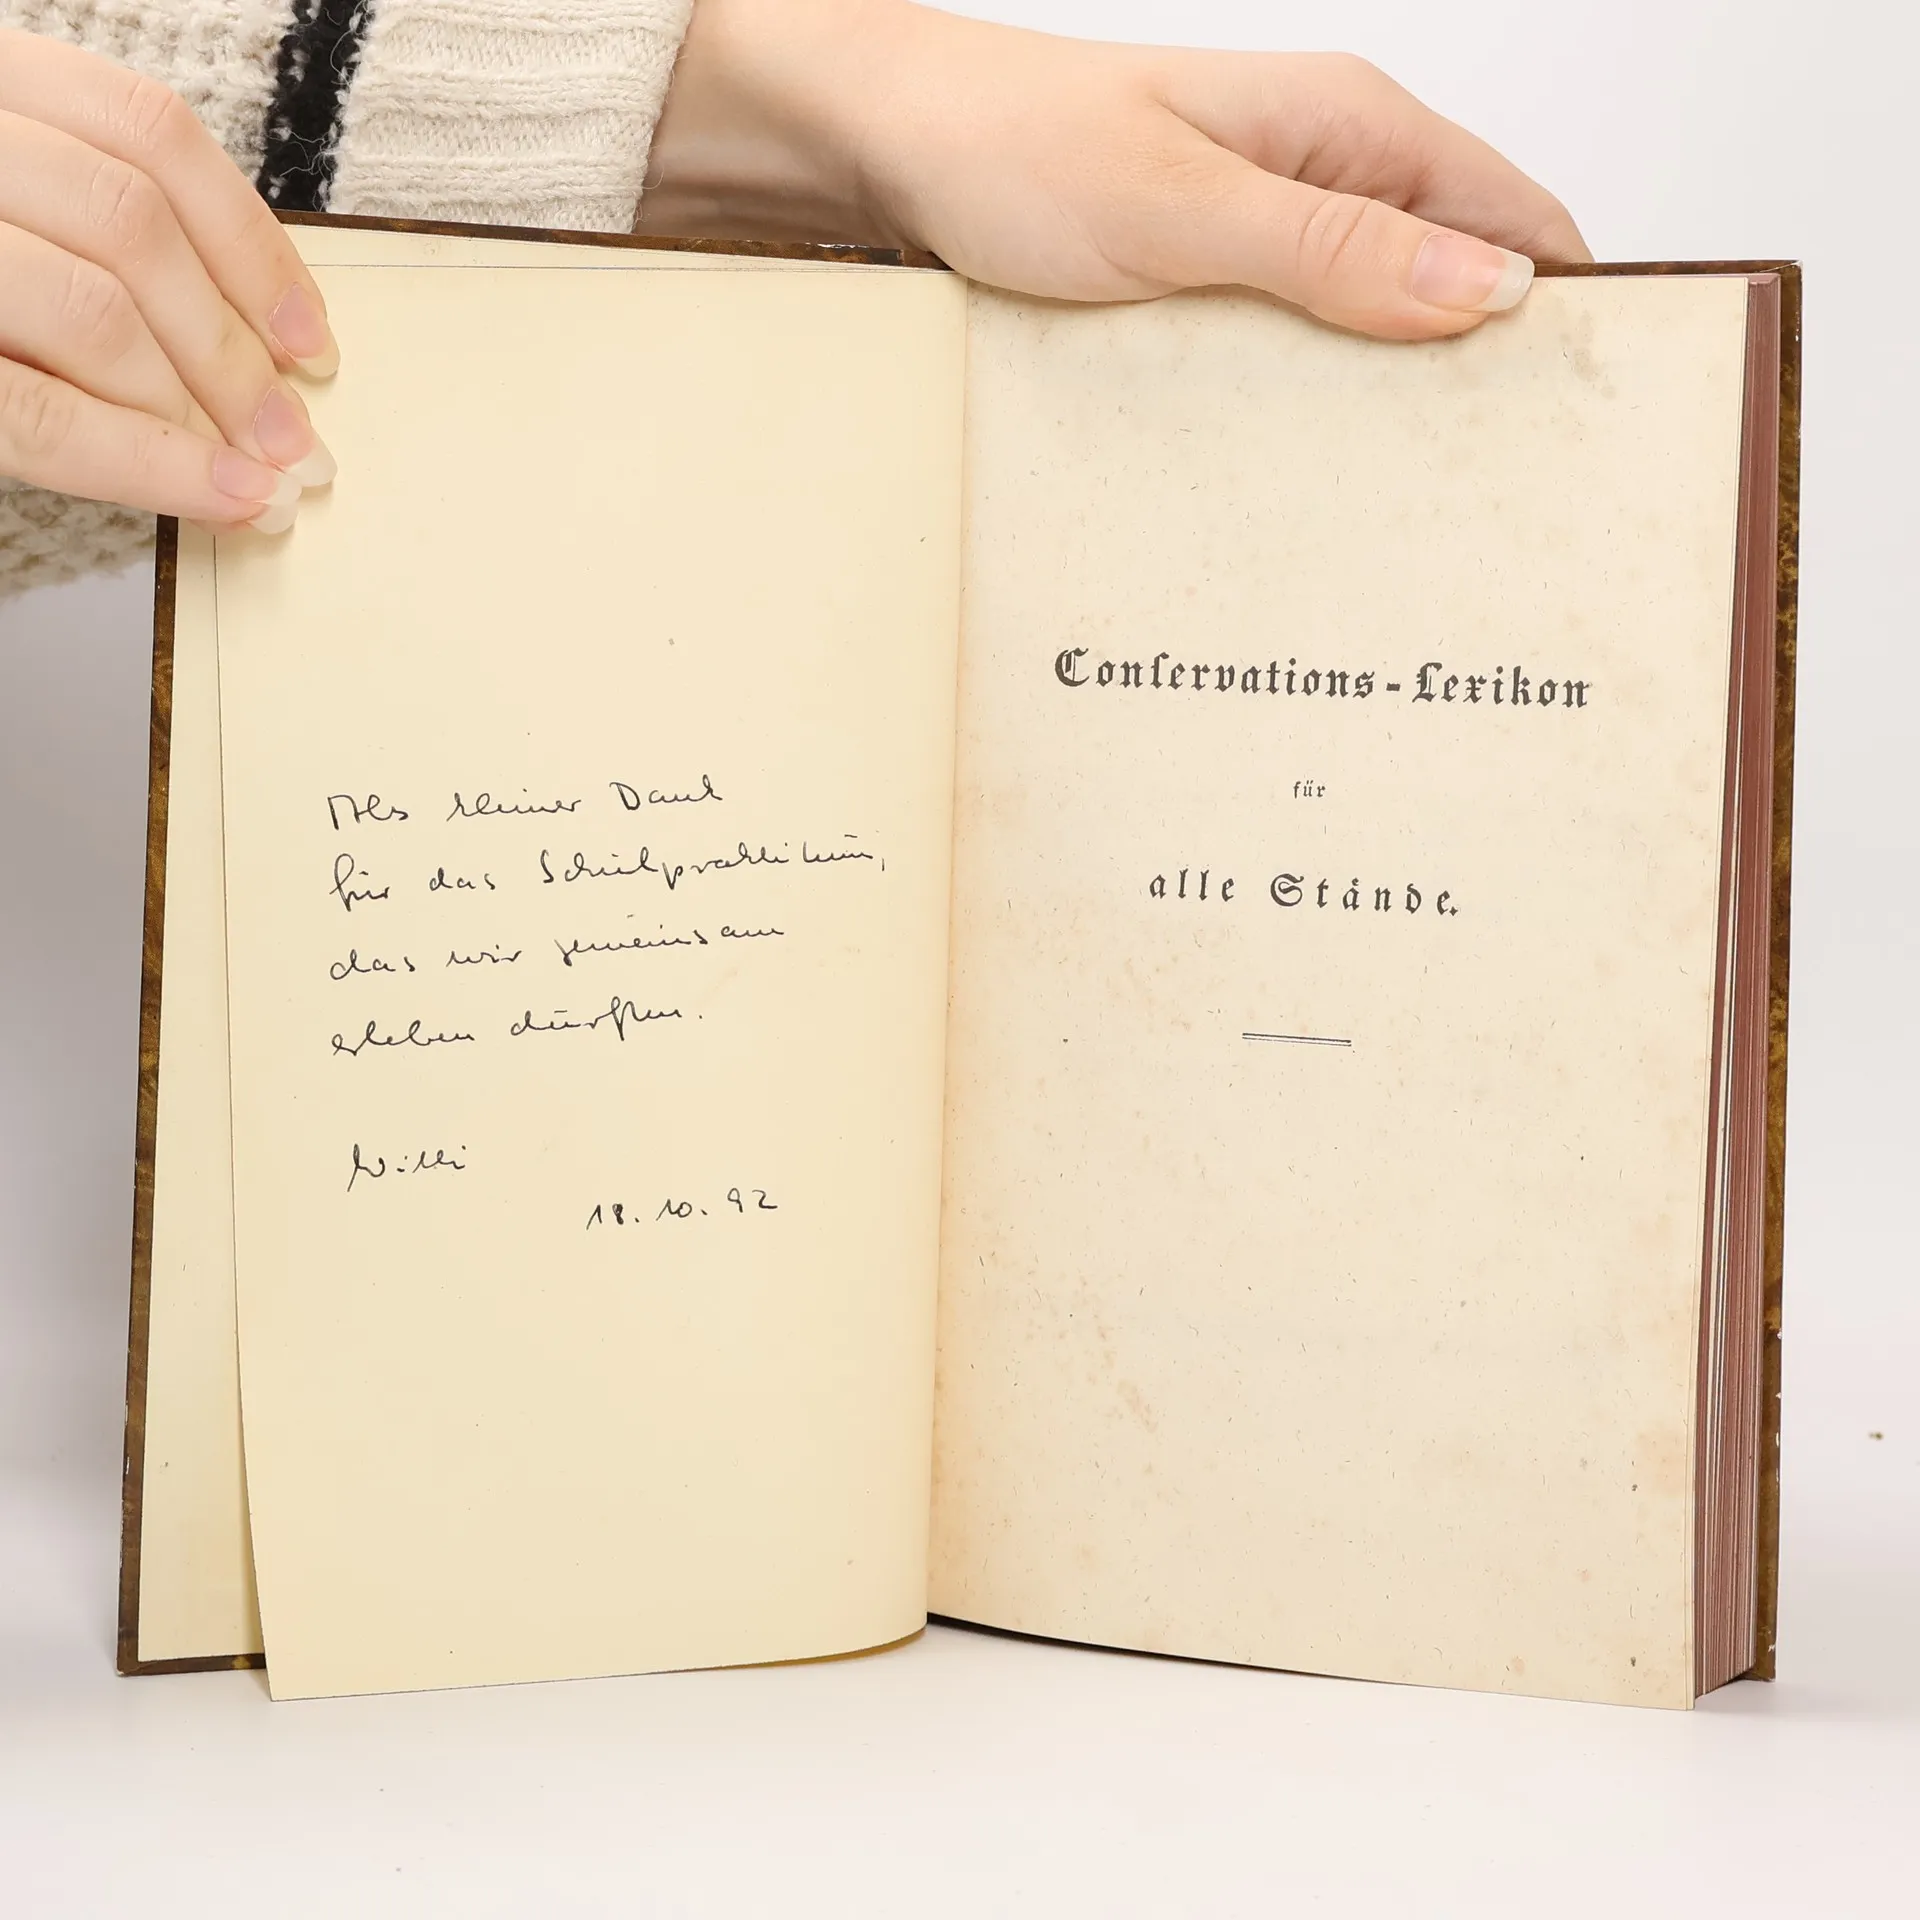 Als kleiner Dank
für das Schulpraktikum,
das wir gemeinsam
erleben durften.
Willi
18.10.92
Conſervations-Lexikon
für
alle Stände.